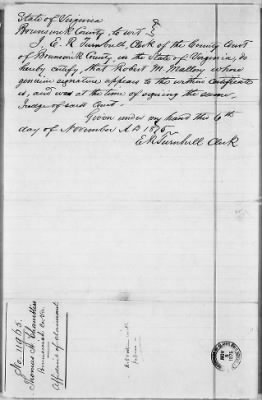 State of Virginia
Brunswick County, to wit
I, E. R. Turnbull, Clerk of the County Court
of Brunswick County, in the State of Virginia, do
hereby certify, that Robert M. Mallory whose
genuine signature appears to the within certificate
is, and was at the time of signing the same,
Judge of said Court.
Given under my hand this 6th
day of November A D 1875
E R Turnbull Clerk
No. 11965.
Thomas H. Chambliss
Brunswick Co. Va.
Affidavit of claimant